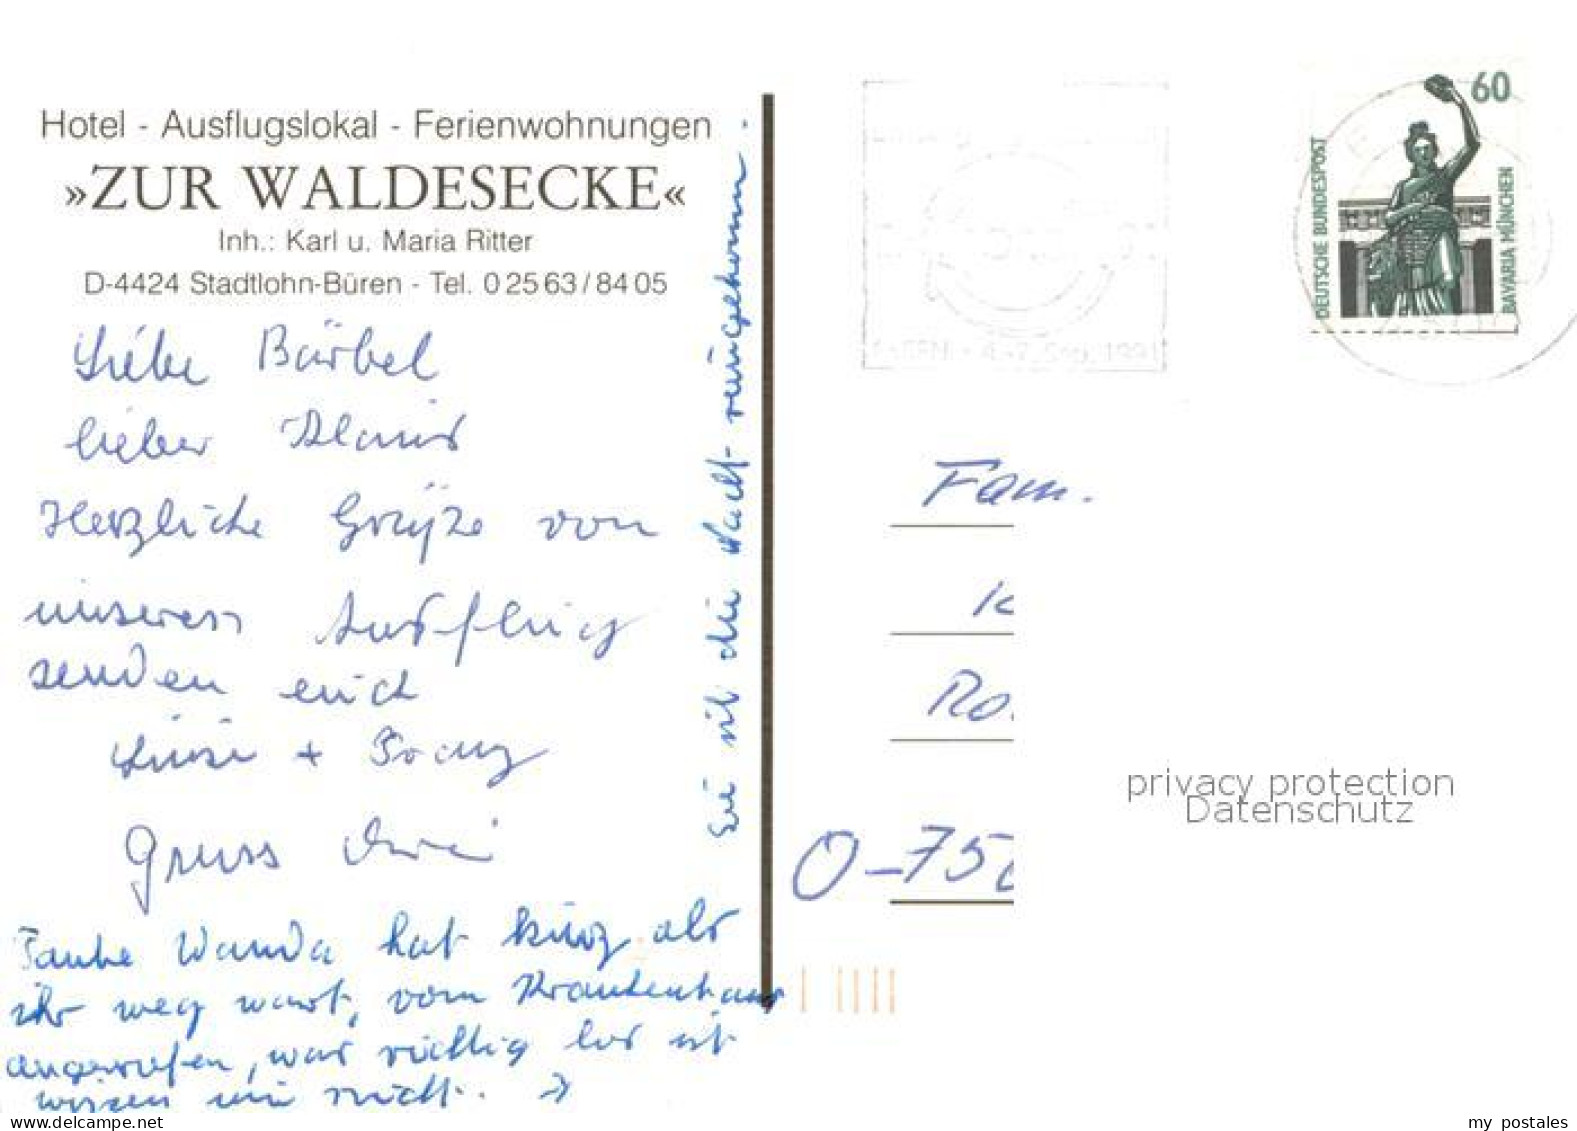 Hotel - Ausflugslokal - Ferienwohnungen
»ZUR WALDESECKE«
Inh.: Karl u. Maria Ritter
D-4424 Stadtlohn-Büren - Tel. 0 25 63 / 84 05
Liebe Bärbel
lieber Klaus
Herzliche Grüße von
unseren Ausflug
senden euch
Luise + Franz
Gruss
Tante Wanda hat kurz als
ihr weg wart, vom Krankenhaus
angerufen, was richtig los ist
wissen wir nicht. →
Sie ist die Nacht reingekomm.
60
DEUTSCHE BUNDESPOST
BAVARIA MÜNCHEN
ESSEN · 4.-7. Sep. 1991
Fam.
K
Ro
O-75
privacy protection
Datenschutz
my postales
www.delcampe.net